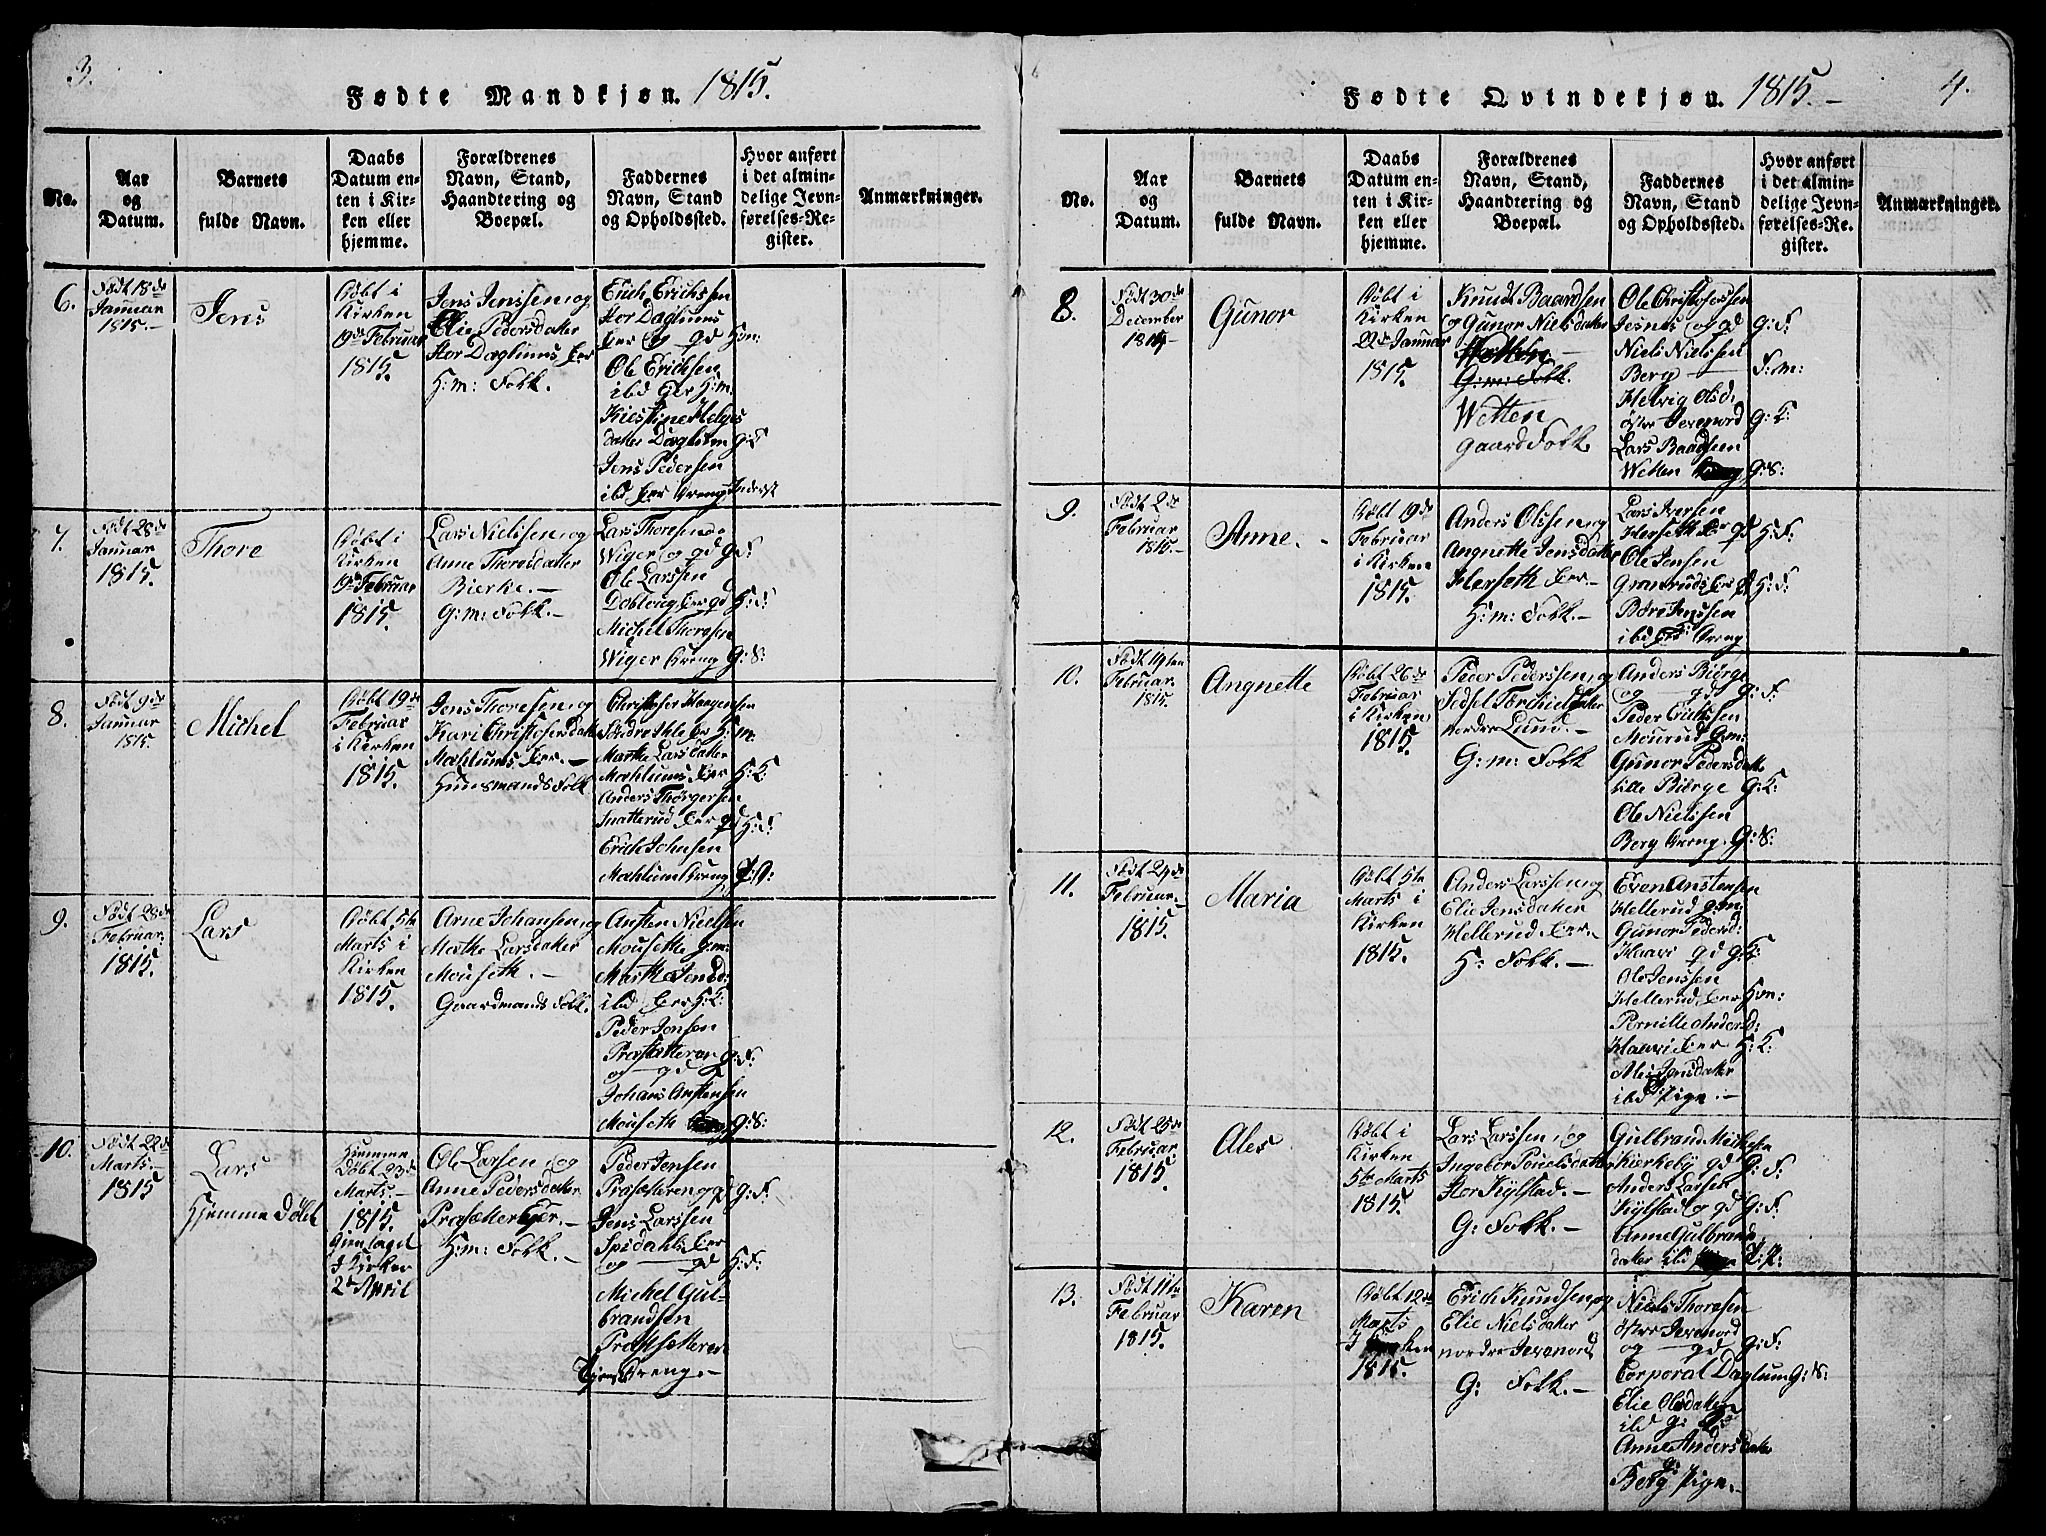 3.
Fødte Mandkjøn. 1815.
No.
Aar
og
Datum.
Barnets
fulde Navn.
Daabs
Datum en-
ten i Kir-
ken eller
hjemme.
Forældrenes
Navn, Stand,
Haandtering og
Boepæl.
Faddernes
Navn, Stand
og Opholdssted.
Hvor anført
i det almin-
delige Jevn-
førelses-Re-
gister.
Anmærkninger.
6.
Født 18de
Januar
1815.-
Jens
Døbt i
Kirken
19de Februar
1815.
Jens Jenssen og
Elie Pedersdater
Stor Daglums Eier
H:m: Folk.
Erich Erichssen
Stor Daglums
Eier og gd H:m:
Ole Erichsen
ibd Eier H:m.
Kiestine Helges
dater Daglum G:K
Jens Pedersen
ibd Eier Dreng Inderst
7.
Født 28de
Januar
1815.
Thore
Døbt i
Kirken
19de Februar
1815.
Lars Nielssen og
Anne Thorosdatter
Bierke.-
G:m: Folk.-
Lars Thoresen
Wiger og gd G:F:
Ole Larssen
Dobloug Eier gd H:F:
Michel Thoresen
Wiger Dreng G:S:
8.
Født 9de
Januar
1815.
Michel
Døbt 19de
Februar
i Kirken
1815.
Jens Thoresen og
Kari Christofersdater
Mahlums Eier.-
Huusmands Folk
Christofer Haagensen
Søndre Ihle Eier H:m:
Marthe Larsdatter
Mahlums Eier H:K:
Anders Thorgersen
Snatterud Eier gd H:F:
Erich Johnsen
Mahlum Dreng
9.
Født 28de
Februar:
1815.
Lars
Døbt 5te
Marts i
Kirken
1815.
Arne Johansen og
Marthe Larsdater
Mouseth.-
Gaardmands Folk.
Ansten Nielssen
Mouseth G:m:
Marthe Jensd:
ibd Eier H:K:
Peder Jensen
Præstsætteren G:F:
og gd
Johans Anstensen
Mouseth G:S:
10.
Født 22de
Marts.-
1815
Lars
Hjemme Døbt
Hjemme
Døbt 23de
Marts.-
1815.
Igientaget
I Kirken
2de April
Ole Larsen og
Anne Pedersdater
Præsætter Eier.-
H:m: Folk.-
Peder Jensen
Præsætteren og gd G:F:
Jens Larssen
Spidahls Eier
og gd H:F:
Michel Gul-
brandsen
Præstsetteren
Dreng.-
4.
Fødte Qvindekjøn. 1815.-
No.
Aar
og
Datum.
Barnets
fulde Navn.
Daabs
Datum en-
ten i Kir-
ken eller
hjemme.
Forældrenes
Navn, Stand,
Haandtering og
Boepæl.
Faddernes
Navn, Stand
og Opholdssted.
Hvor anført
i det almin-
delige Jevn-
førelses-Re-
gister.
Anmærkninger.
8.
Født 30de
December
1814-
Gunor
Døbt i
Kirken
22de Januar
1815.
Knudt Baardsen
og Gunor Nielsdater
G:m: Folk.
Wetten
gaard Folk
Ole Christofersen
Jesnes og gd G:F:
Niels Nielssen
Berg F:m:
Helvig Olsd:
østre Jevenord G:K:
Lars Baadsen
Wetten G:S:
9.
Født 2de
Februar
1815.-
Anne.-
Døbt 19de
Februar
i Kirken
1815.
Anders Olssen og
Angnette Jensdatter
Herseth Eier-
H:m: Folk.-
Lars Iversen
Herseth Eier gd H:F:
Ole Jensen
Granruds Eier gd H:F:
Børe Jenssen
ibd Eier Dreng
10.
Født 19ten
Februar.
1815.
Angnette
Døbt 26de
Februar
i Kirken
1815.
Peder Pederssen og
Sidsel Torchieldsdater
nordre Lund.-
G:m: Folk
Anders Biørge
og gd G:F:
Peder Erichssen
Mourud G:m:
Gunor Pedersdatter
lille Biørge G:K:
Ole Nielssen
Berg Dreng. G:S:
11.
Født 24de
Februar.
1815.
Maria
Døbt 5te
Marts i
Kirken
1815.
Anders Larssen og
Elie Jensdater
Hellerud Eier-
H: Folk.-
Even Anstensen
Hellerud G:m:
Gunor Pedersd:
Haavi gd G:K:
Ole Jenssen
Hellerud Eier H:m:
Pernille Andersd:
Haavi Eier H:K:
Ales Jensdater
ibd Pige.-
12.
Født 25de
Februar
1815.
Ales
Døbt i
Kirken
5te Marts
1815.
Lars Larssen og
Ingebor Poulsdatter
Stor Kylstad.-
G: Folk.-
Gulbrand Michelsen
Kirkeby gd G:F:
Anders Larsen
Kylstad og gd G:F:
Anne Gulbrands
dater ibd
13.
Født 11te
Februar
1815.
Karen
Døbt 12te
Marts
I Kirken
1815.
Erich Knudsen og
Elie Nielsdater
nordre Jevenord
G: Folk.-
Niels Thoresen
østre Jevenord
og gd G:F:
Corporal Daglum G:S:
Elie Olsdater
ibd G: K:
Anne Andersdater
Berg Pige.-